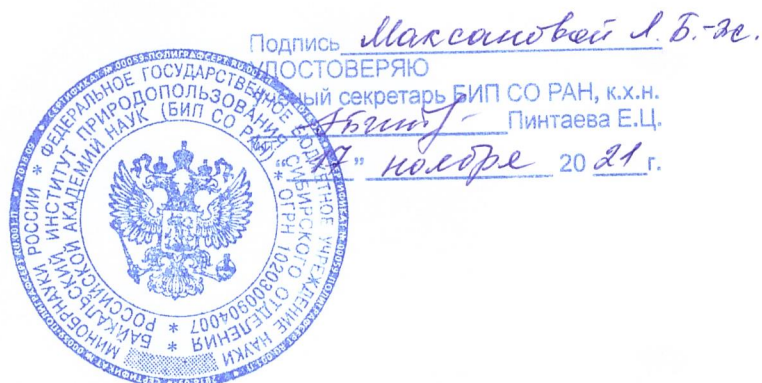 Подпись Максановой Л. Б.-Ж.
УДОСТОВЕРЯЮ
Ученый секретарь БИП СО РАН, к.х.н.
Пинтаева Е.Ц.
"17" ноября 20 21 г.
МИНОБРНАУКИ РОССИИ * ФЕДЕРАЛЬНОЕ ГОСУДАРСТВЕННОЕ БЮДЖЕТНОЕ УЧРЕЖДЕНИЕ НАУКИ
БАЙКАЛЬСКИЙ ИНСТИТУТ ПРИРОДОПОЛЬЗОВАНИЯ СИБИРСКОГО ОТДЕЛЕНИЯ
РОССИЙСКОЙ АКАДЕМИИ НАУК (БИП СО РАН) * ОГРН 1020300904007 *